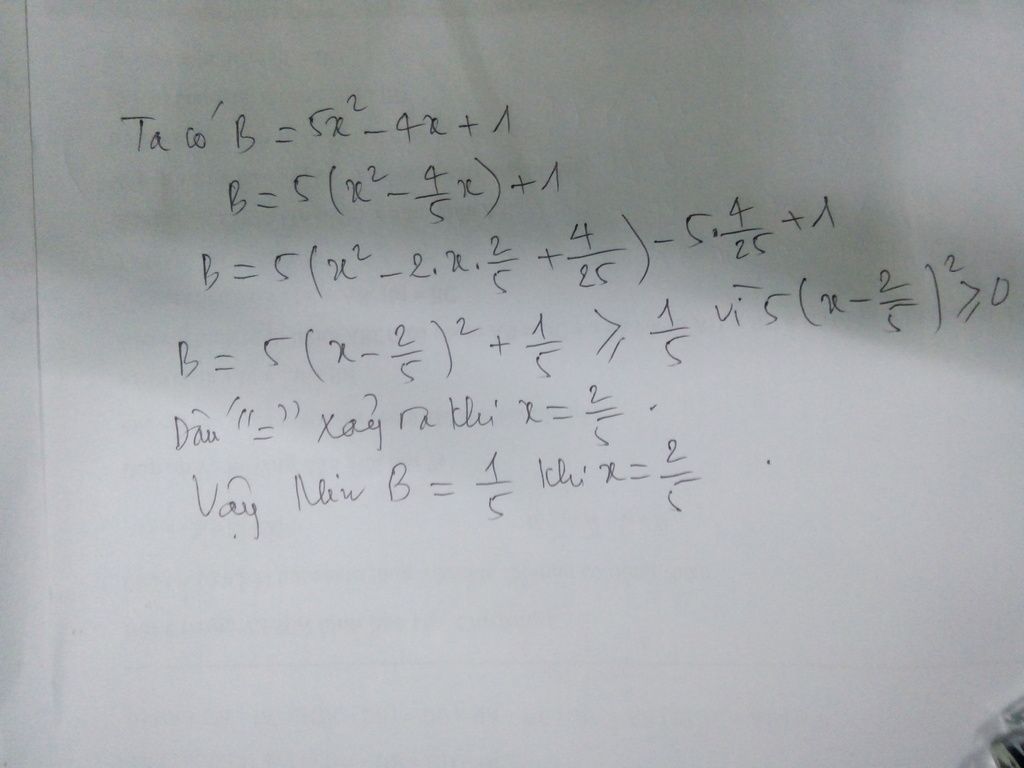 Ta có B = 5x² - 4x + 1
B = 5(x² - 4/5 x) + 1
B = 5(x² - 2.x.2/5 + 4/25) - 5.4/25 + 1
B = 5(x - 2/5)² + 1/5 ≥ 1/5 vì 5(x - 2/5)² ≥ 0
Dấu "=" xảy ra khi x = 2/5.
Vậy Min B = 1/5 khi x = 2/5.